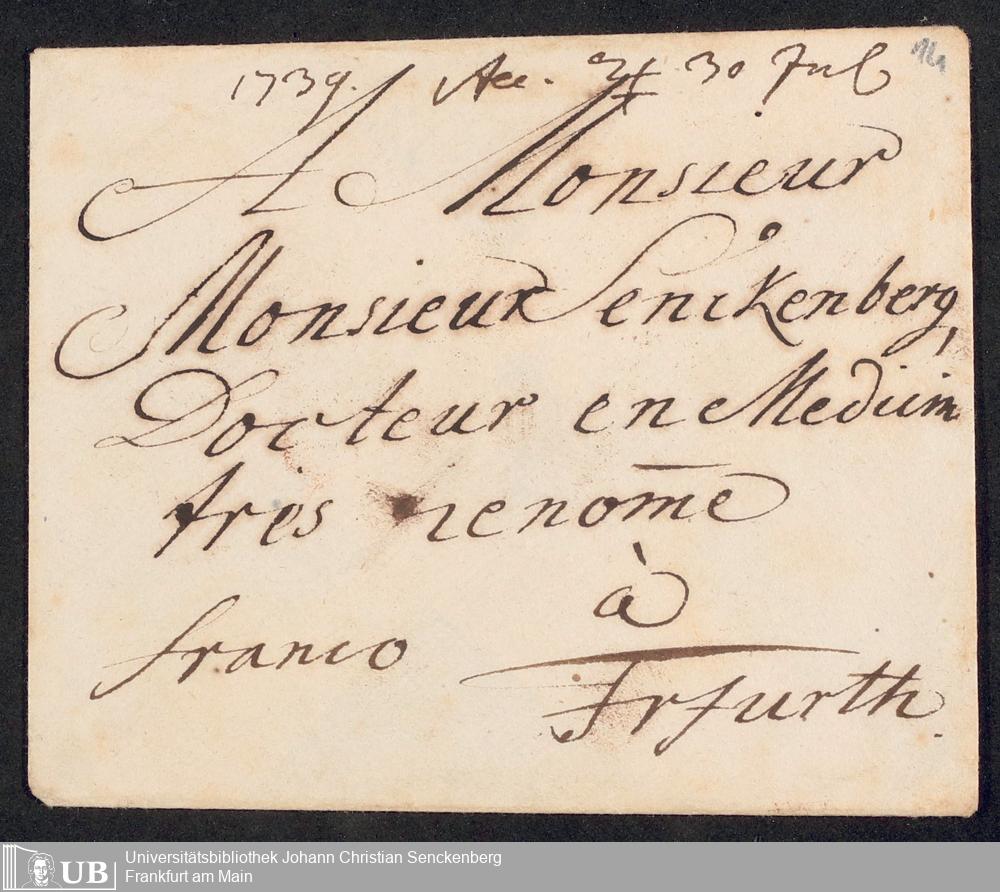 1739. Acc. ♃ 30 Jul
A Monsieur
Monsieur Senckenberg,
Docteur en Medicin
tres renom̄e
à
franco
Erfurth.
UB Universitätsbibliothek Johann Christian Senckenberg
Frankfurt am Main